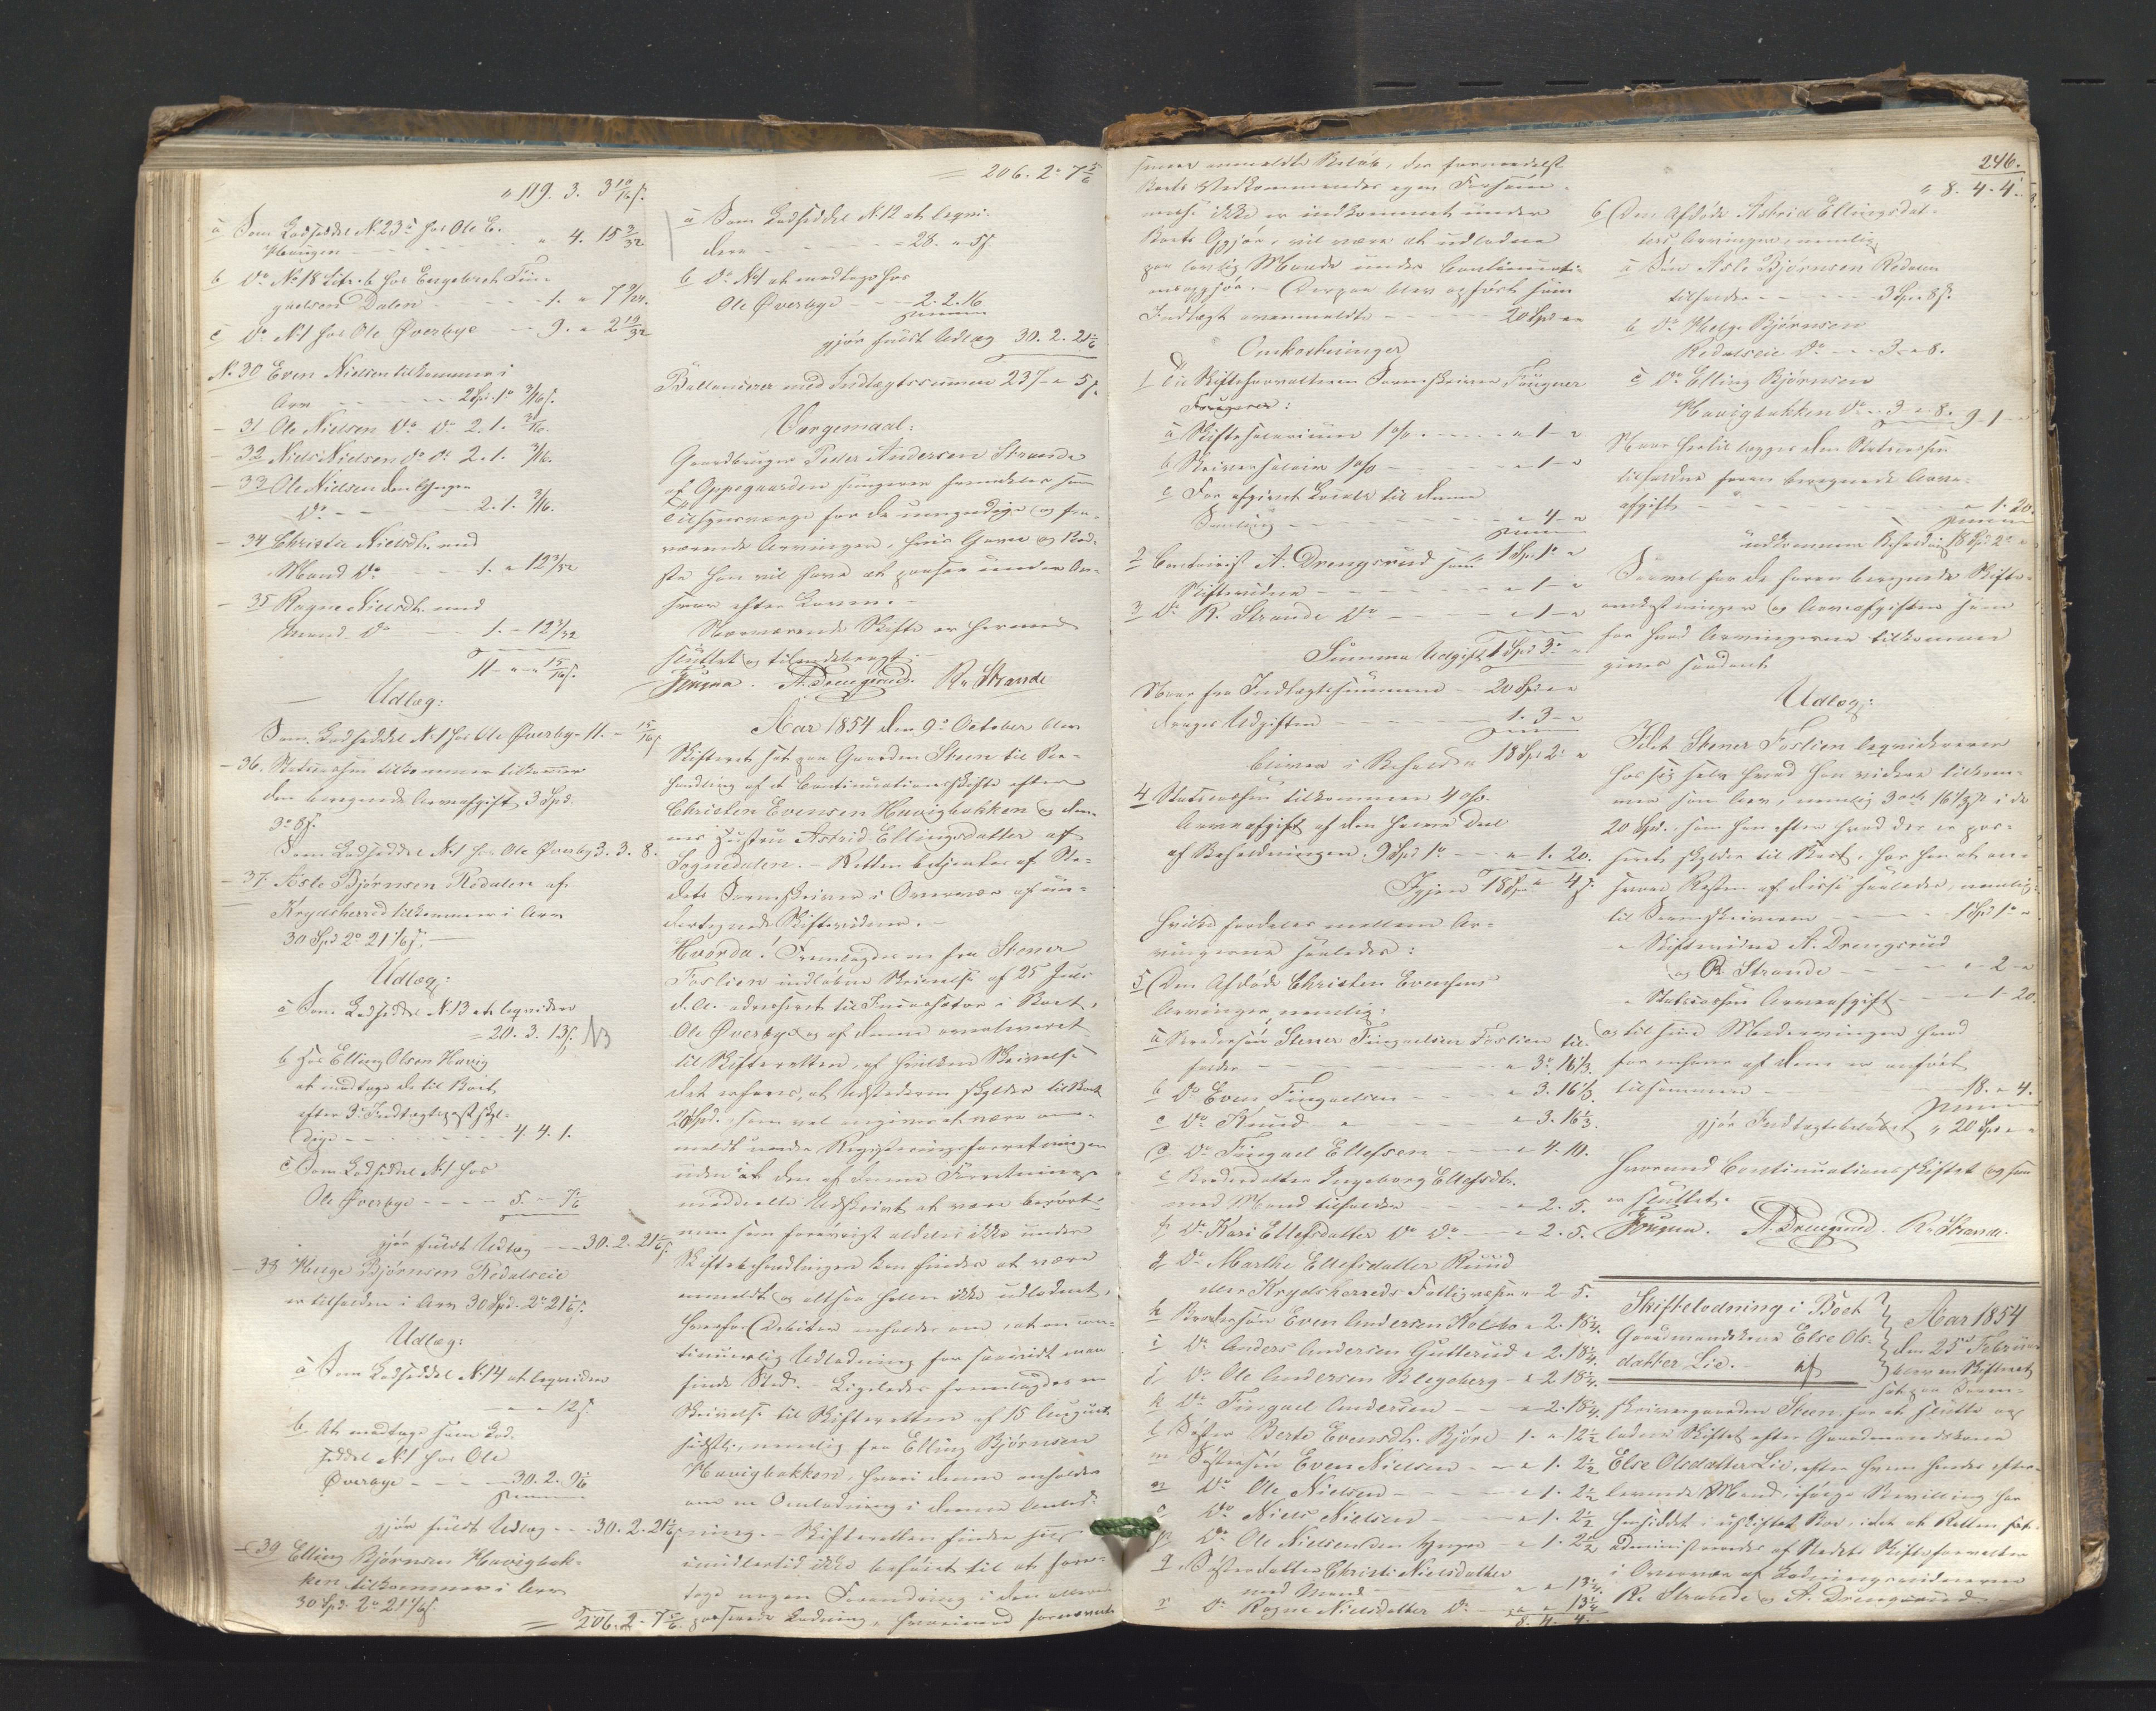 " 119. 3. 3 10/16 s.
a Som Lodseddel No 23 a hos Ole E.
Haugen - - - " 4. 15 3/32
b Do No 18 Litr. b hos Engebrech Fin-
guelsen Dalen - - - 1. " 7 9/24.
c Do No 1 hos Ole Øverbye - - 9. " 2 19/32
No 30 Even Nielsen tilkommer i
Arv - - - 2 Spd. 1 o 3/16 s.
- 31 Ole Nielsen Do Do 2. 1. 3/16.
- 32 Niels Nielsen do do 2. 1. 3/16.
- 33 Ole Nielsen den yngre
Do - - - 2. 1. 3/16.
- 34 Christi Nielsdtr. med
Mand Do - - 1. " 12 3/32
- 35 Ragne Nielsdtr. med
Mand Do - - 1. - 12 3/32
11 - " - 15/16 s.
Udlæg:
Som Lodseddel No 1 hos Ole Øverby - 11. - 15/16 s
- 36. Statscassen tilkommer
den beregnede Arveafgift, 3 Spd.
3 o 8 s.
Som Lodseddel No 1 hos Ole Øverby 3. 3. 8.
- 37. Asle Bjørnsen Rødalen af
Krydsherred tilkommer i Arv
30 Spd 2 o 21 1/6 s. -
Udlæg:
a Som Lodseddel No 13 at leqvidere
= 20. 3. 13 s.
b hos Elling Olsen Havig
at modtage de til Boet
efter 3 Indtægtspost skyl-
dige - - - - 4. 4. 1.
c Som Lodseddel No 1 hos
Ole Øverbye - - - 5. - 7 1/6
gjør fuldt Udlæg - - 30. 2. 21 1/6 s.
- 38 Helge Bjørnsen Rødalseie
er tilfalden i Arv 30 Spd. 2 o 21 1/6 s.
Udlæg:
a Som Lodseddel No 14 at leqvidere
- " - " 12 s.
b. At modtage som Lod-
seddel No 1 hos Ole
Øverbye - - - 30. 2. 9 1/6
gjør fuldt Udlæg - - 30. 2. 21 1/6
- 39 Elling Bjørnsen Havigbak-
ken tilkommer i Arv
30 Spd. 2 o 21 1/6 s.
= 206. 2. 7 5/6.
= 206. 2 o 7 5/6
a Som Lodseddel No 12 at leqvi-
dere - - - 28. " 5 s
b Do No 1 at modtage hos
Ole Øverbye - - - 2. 2. 16
gjør fuldt Udlæg 30. 2. 21 1/6
Ballancerer med Indtægtssummen 237 - " 5 s.
Værgemaal:
Gaardbruger Peder Andersen Strande
af Oppegaarden fungerer fremdeles som
Tilsynsværge for de umyndige og fra-
værende Arvinger, hvis Gavn og Bed-
ste han vil have at paasee under An-
svar efter Loven. -
Nærværende Skifte er hermed
sluttet og tilendebragt. -
Fougner. A. Drengsrud. R. Strande
Aar 1854 den 9de October blev
Skifteret sat paa Gaarden Steen til Be-
handling af et Continuationsskifte efter
Christen Evensen Havigbakken og den-
nes Hustru Astrid Ellingsdatter af
Sognedalen. - Retten betjentes af Ste-
dets Sorenskriver i Overvær af un-
dertegnede Skiftevidner. -
Hvorda! Fremlagdes en fra Stener
Foslien indløben Skrivelse af 25 Juli
d. A. adresseret til Incassator i Boet,
Ole Øverbye og af denne overleveret
til Skifteretten, af hvilken Skrivelse
det erfares, at Udstederen skylder til Boet
20 Spd. som vel angives at være an-
meldt under Registreringsforretningen
uden at den af denne Forretning
meddeelte Udskrivt at være berørt,
men som forøvrigt aldeles ikke under
Skiftebehandlingen kan findes at være
anmeldt og altsaa heller ikke udloddet,
hvorfor Debitor anholder om, at en con-
tinuerlig Udlodning for saavidt maa
finde Sted. - Ligeledes fremlagdes en
Skrivelse til Skifteretten af 15 August
sidstl., nemlig fra Elling Bjørnsen
Havigbakken, hvori denne anholder
om en Omlodning i denne Anled-
ning. - Skifteretten finder sig
imidlertid ikke beføiet til at fore-
tage nogen Forandring i den allerede
passerede Lodning, hvorimod fornævnte
246.
senere anmeldte Beløb, der formedelst
Boets Vedkommendes egen Forsøm-
melse ikke er indkommet under
Boets Opgjør, vil være at udlodde
paa lovlig Maade under Continuati-
onsopgjør. - Derpaa blev opført som
Indtægt ovenmeldte - - - 20 Spd " "
Omkostninger
1 Til Skifteforvalteren Sorenskriver Fougner
Fougner:
a Skiftesalarium 1 o/o - - - " 1 - "
b Skriversalair 1 o/o - - - " 1 - "
c For afgivet Locale til denne
Samling - - - " 4 - "
1 Spd 1 o "
2 Contorist A. Drengsrud som
Skiftevidne - - - " 1 - "
3 Do R. Strande Do - - - " 1 - "
Summa Udgift 1 Spd 3 o "
Naar fra Indtægtssummen - 20 Spd " "
drages Udgiften - - - 1. 3 - "
bliver i Behold " 18 Spd 2 o "
4 Statscassen tilkommer 4 o/o
Arveafgift af den halve Deel
af Beholdningen, 9 Spd 1 o - - " 1. 20.
Igjen 18 Spd " 4 s.
hvilke fordeles mellem Ar-
vingerne saaledes:
5 Den Afdøde Christen Evensens
Arvinger, nemlig:
a Brodersøn Stener Finguelsen Foslien til-
falder - - - " 3 o 16 1/3.
b Do Even Finguelsen - - - " 3. 16 1/3.
c Do Knud - " - - - " 3. 16 1/3.
d Do Finguel Ellefsen - - - " 4. 10.
e Broderdatter Ingeborg Ellefsdtr.
med Mand tilfalder - - - " 2. 5.
f Do Kari Ellefsdatter Do Do - - " 2. 5.
g Do Marthe Ellefsdatter Ruud
eller Krydsherreds Fattigvæsen " 2 - 5.
h Brodersøn Even Andersen Kolbo " 2. 18 1/4.
i Do Anders Andersen Gutterud " 2. 18 1/4.
j Do Ole Andersen Blegeberg - " 2. 18 1/4.
k Do Finguel Andersen - - " 2. 18 1/4.
l Søster Berte Evensdtr. Bjøre - 1. " 12 1/2
m Søstersøn Even Nielsen - - " 1. 2 1/2
n Do Ole Nielsen - - - " 1. 2 1/2
o Do Niels Nielsen - - - " 1. 2 1/2
p Do Ole Nielsen den yngre - " 1. 2 1/2
q Søsterdatter Christi Nielsdatter
med Mand - - - " " 13 1/4.
r Do Ragne Nielsdatter Do - - " " 13 1/4
8. 4. 4.
" 8. 4. 4.
6 Den Afdøde Astrid Ellingsdat-
ters Arvinger, nemlig
a Søn Asle Bjørnsen Rødalen
tilfalder - - - - 3 Sp. " 8 s.
b Do Helge Bjørnsen
Rødalseie Do - - - 3. " 8.
c Do Elling Bjørnsen
Havigbakken Do - 3 " 8. 9 - 1 - "
Naar hertil lægges den Statscassen
tilfaldne foran beregnede Arve-
afgift - - - " 1. 20.
udkommer Behold 18 Spd 2 o "
Saavel for de foran beregnede Skifte-
omkostninger og Arveafgiften som
for hvad Arvingerne tilkommer
gives saadant
Udlæg:
Idet Stener Foslien leqviderer
hos sig selv hvad han videre tilkom-
mer som Arv, nemlig 3 ort 16 1/3 s i de
20 Spd., som han efter hvad der er pas-
seret skylder til Boet, har han at an-
svare Resten af disse saaledes, nemlig:
til Sorenskriveren - - - 1 Spd 1 o "
" Skiftevidne A. Drengsrud
og R. Strande - - - " - 2 - "
" Statscassen Arveafgift - - " 1 - 20.
og til sine Medarvinger hvad
for enhver af dem er anført
tilsammen - - - 18. " 4.
gjør Indtægtsbeløbet " 20 Sp. " "
hvormed Continuationsskiftet og saa
er sluttet.
Fougner. A. Drengsrud. R. Strande.
Skiftelodning i Boet
Gaardmandskone Else Ols-
datter Lie. - af
Aar 1854
den 25de Februar
blev en Skifteret
sat paa Soren-
skrivergaarden Steen for at slutte og
lodne Skiftet efter Gaardmandskone
Else Olsdatter Lie, efter hvem hendes efter-
levende Mand ifølge Bevilling har
hensiddet i uskiftet Boe, idet at Retten sat-
administreredes af Stedets Skifteforvalter
i Overvær af Lodningsvidnerne
R. Strande og A. Drengsrud